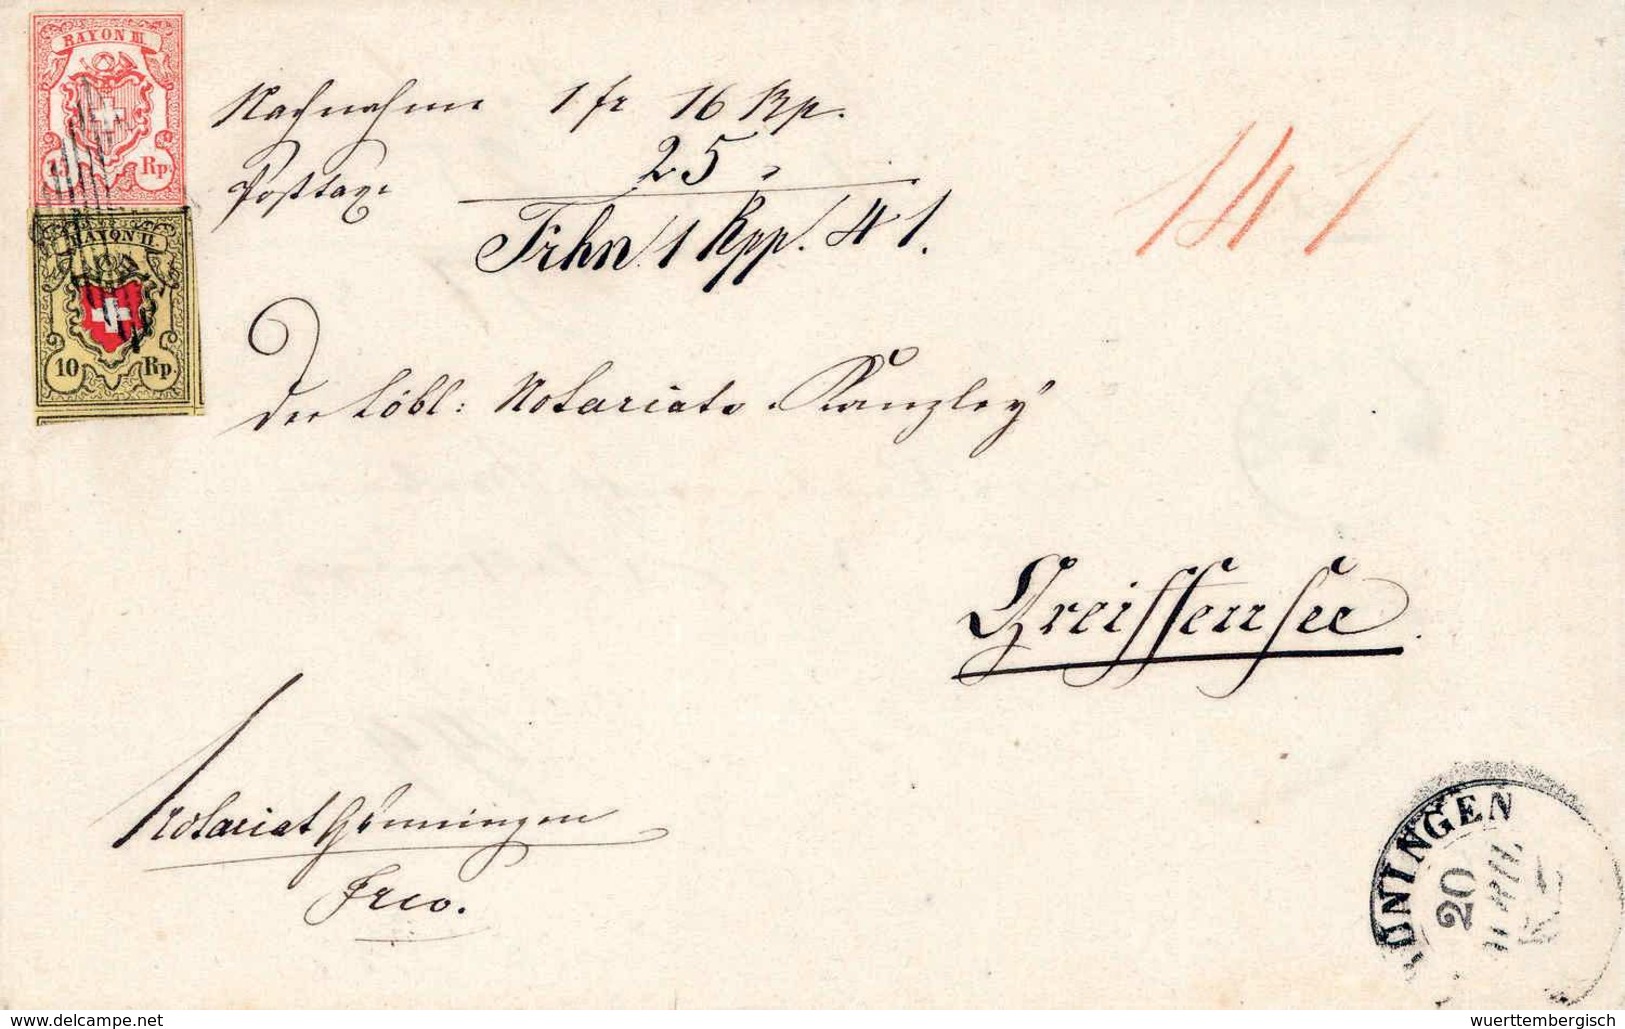 RAYON III.
15 Rp.
RAYON II.
10 Rp.
Nachnahme 1 fr 16 Rp.
Posttaxe 25 "
Frkn 1 Rpp. 41.
141
Der Löbl: Notariats Kanzley
Greiffensee
Notariat Grünningen
Frco.
GRÜNINGEN
20
APRIL
delcampe.net
wuerttembergisch